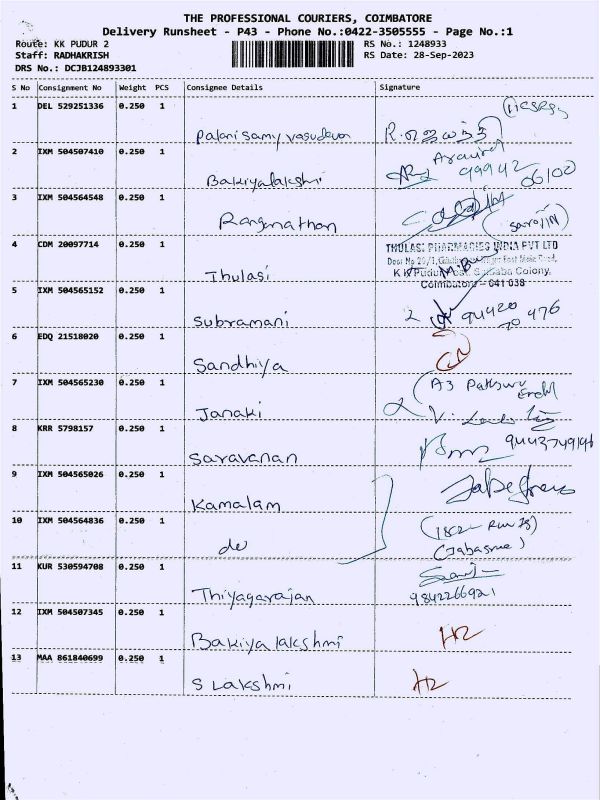 THE PROFESSIONAL COURIERS, COIMBATORE
Delivery Runsheet - P43 - Phone No.:0422-3505555 - Page No.:1
Route: KK PUDUR 2 RS No.: 1248933
Staff: RADHAKRISH RS Date: 28-Sep-2023
DRS No.: DCJB124893301
S No Consignment No Weight PCS Consignee Details Signature
1 DEL 529251336 0.250 1
Palanisamy vasudevan
2 IXM 504507410 0.250 1
Bakiyalakshmi 99942 06100
3 IXM 504564548 0.250 1
Ranganathan
4 CDM 20097714 0.250 1 THULASI PHARMACIES INDIA PVT LTD
Thulasi K K Pudur Post, Colony,
Coimbatore - 641 038
5 IXM 504565152 0.250 1
Subramani 94420 70 476
6 EDQ 21518020 0.250 1
Sandhiya
7 IXM 504565230 0.250 1 A3
Janaki
8 KRR 5798157 0.250 1
Saravanan
9 IXM 504565026 0.250 1
Kamalam
10 IXM 504564836 0.250 1
do
11 KUR 530594708 0.250 1
Thiyagarajan 9842266921
12 IXM 504507345 0.250 1
Bakiyalakshmi
13 MAA 861840699 0.250 1
S Lakshmi